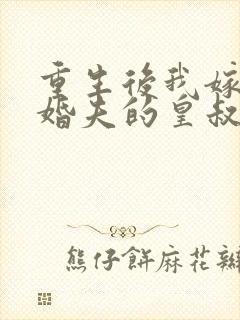 重生後我嫁
婚夫的皇叔
熊仔餅麻花辮